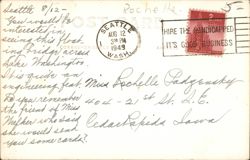 Rochelle
5
Seattle 8/12-
You would be
interested in
seeing this float-
ing bridge across
Lake Washington.
It is quite an
engineering feat.
Do you remember
the friend of Miss
who said
she would send
you some cards?
SEATTLE
AUG 12
PM
1949
WASH.
HIRE THE HANDICAPPED
IT'S GOOD BUSINESS
Miss Rochelle
404-21st St. S.E.
Cedar Rapids Iowa